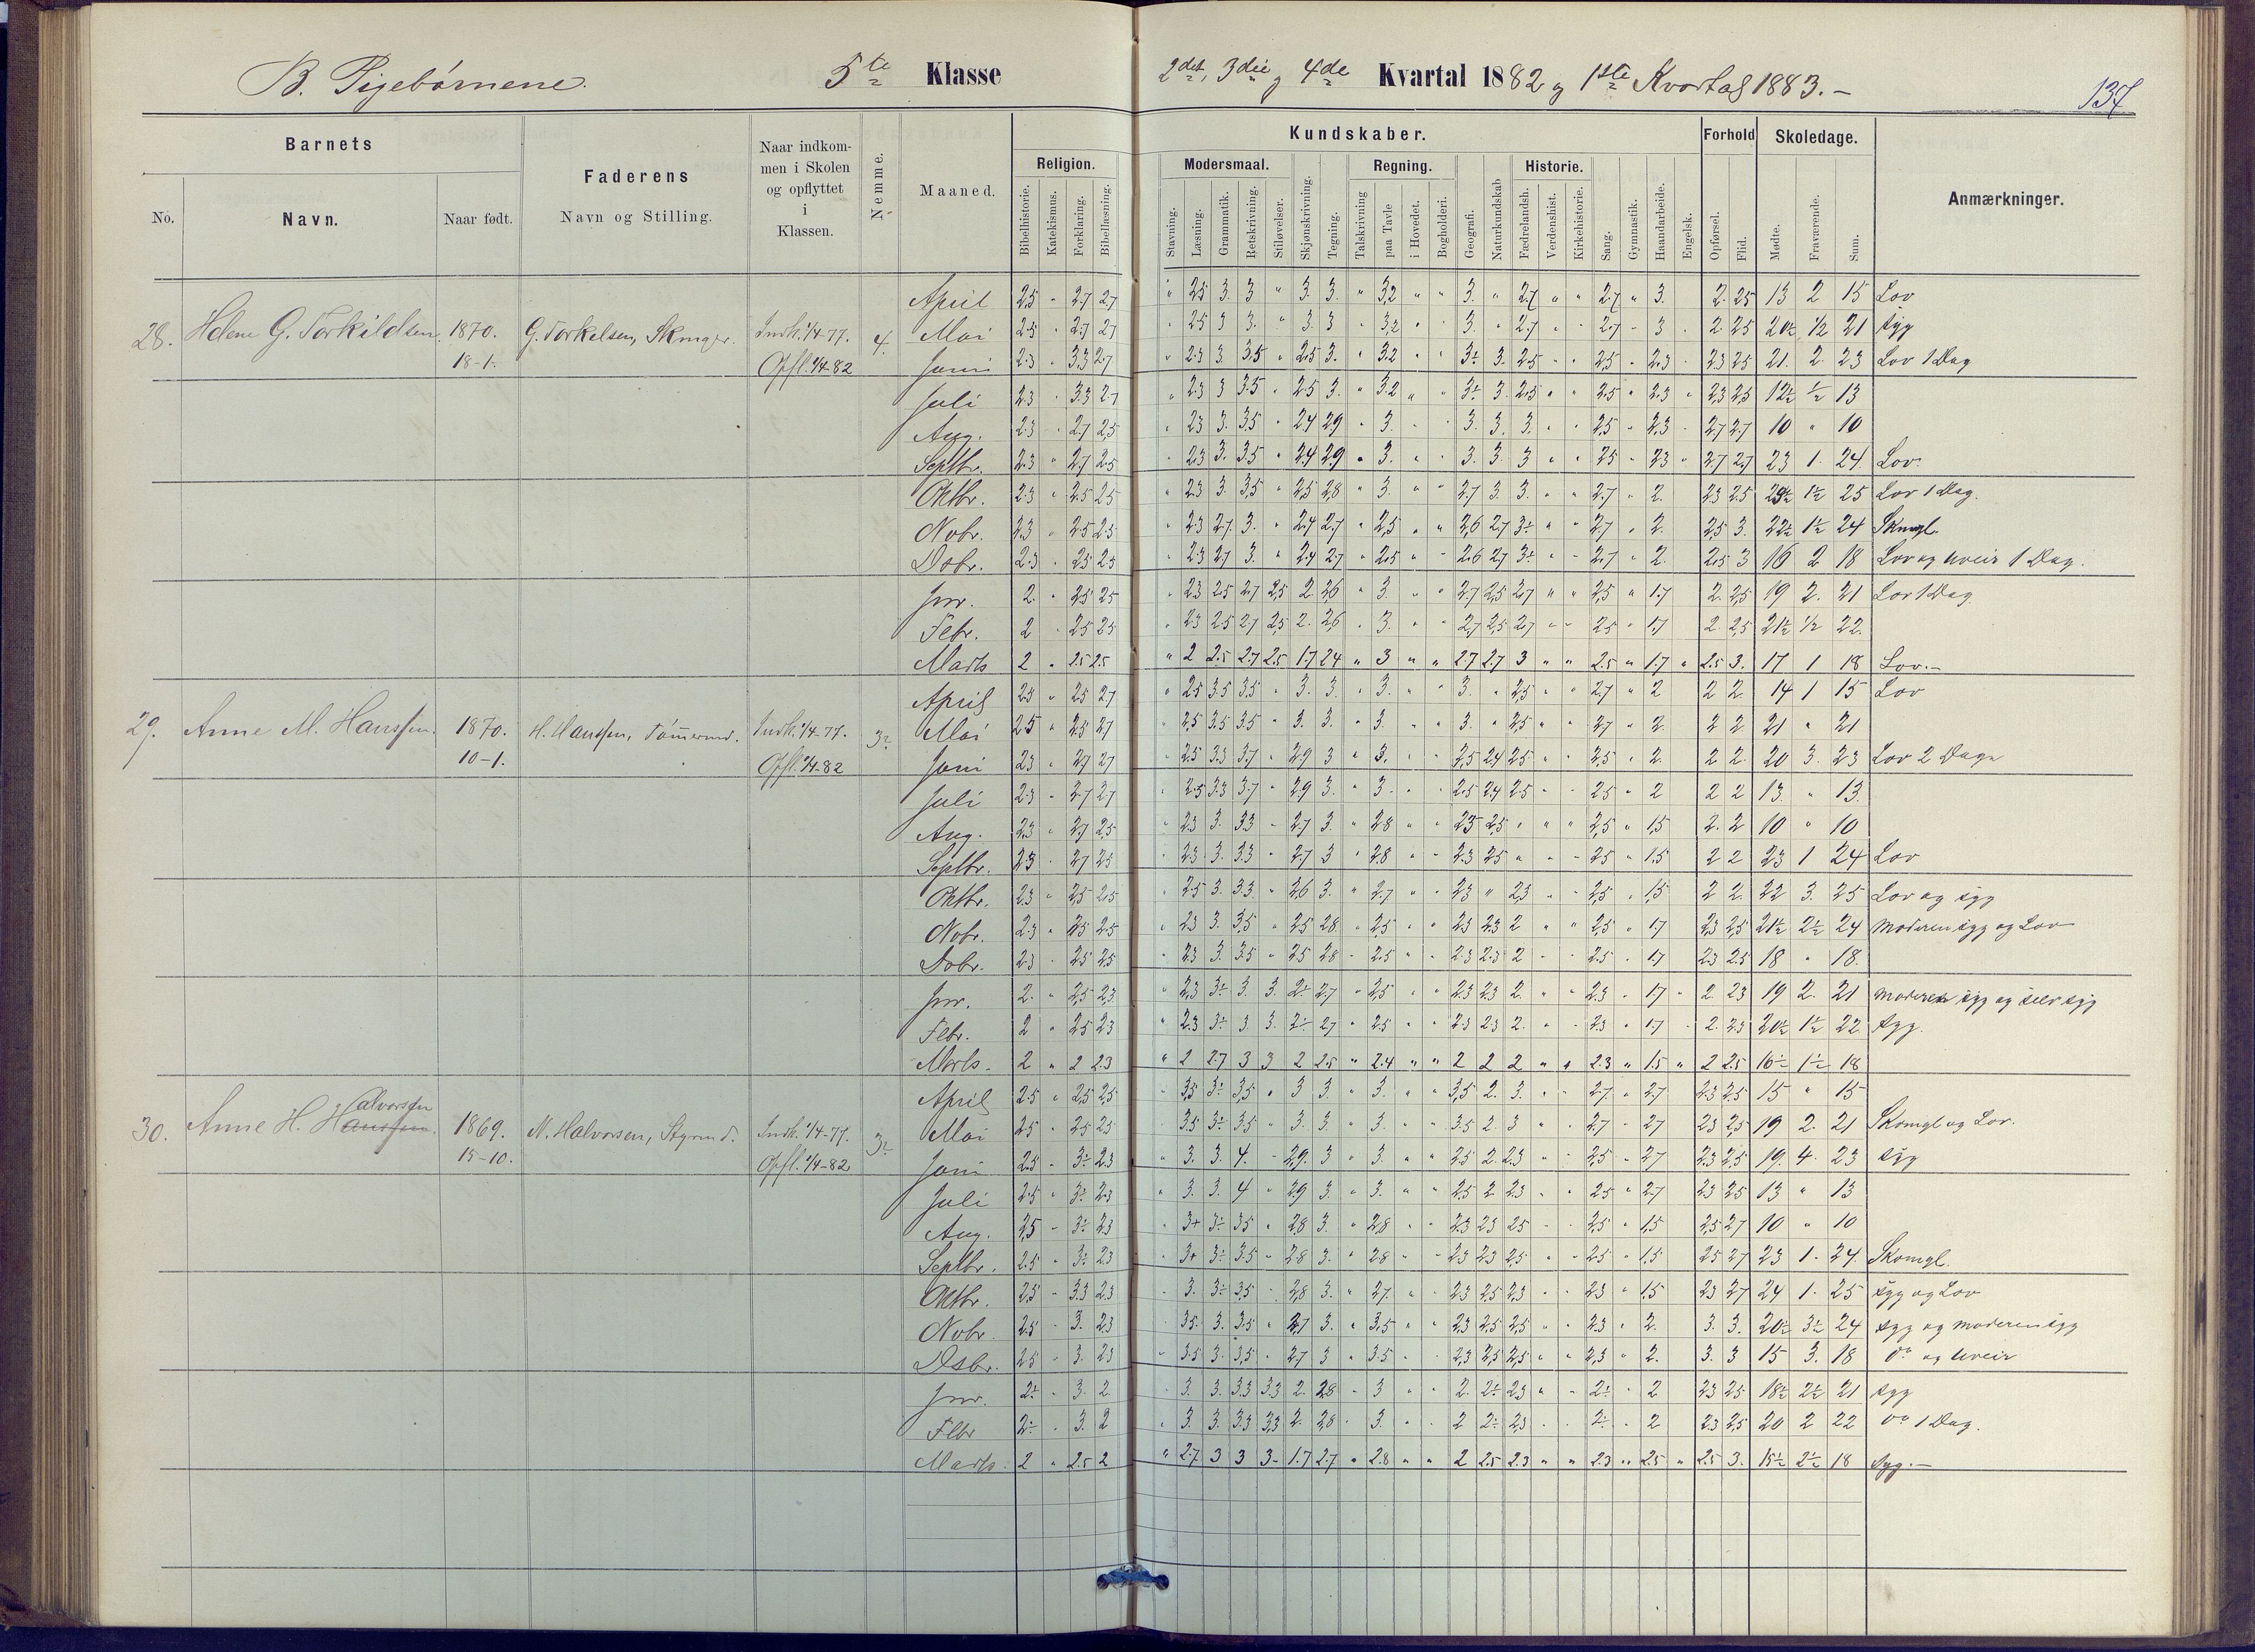 B. Pigebørnene.
5te Klasse
2det, 3die og 4de Kvartal 1882 og 1ste Kvartal 1883.–
137
Barnets
No.
Navn.
Naar født.
Faderens
Navn og Stilling.
Naar indkom-
men i Skolen
og opflyttet
i
Klassen.
Nemme.
Maaned.
Kundskaber.
Religion.
Bibelhistorie.
Katekismus.
Forklaring.
Bibellæsning.
Modersmaal.
Stavning.
Læsning.
Grammatik.
Retskrivning.
Stiløvelser.
Skjønskrivning.
Tegning.
Regning.
Talskrivning
paa Tavle
i Hovedet.
Bogholderi.
Geografi.
Naturkundskab
Historie.
Fædrelandsh.
Verdenshist.
Kirkehistorie.
Sang.
Gymnastik.
Haandarbeide.
Engelsk.
Forhold
Opførsel.
Flid.
Skoledage.
Mødte.
Fraværende.
Sum.
Anmærkninger.
28. Helene G. Torkildsen. 1870. 18-1. G. Torkelsen, Indk. 1/4-77. Opfl. 1/4-82 4.
April 2.5 " 2.7 2.7 " 2.5 3. 3 " 3. 3. " 3.2 " " 3. " 2.7 " " 2.7 " 3. 2. 2.5 13 2 15 Lov
Mai 2.5 " 2.7 2.7 " 2.5 3 3. " 3. 3 " 3.2 " " 3. " 2.7 " " 2.7 " 3 2. 2.5 20½ ½ 21 syg
Juni 2.3 " 3.3 2.7 " 2.3 3 3.5 " 2.5 3. " 3.2 " " 3÷ 3. 2.5 " " 2.5 " 2.3 " 2.3 2.5 21. 2. 23 Lov 1 Dag
Juli 2.3 " 3.3 2.7 " 2.3 3 3.5 " 2.5 3. " 3.2 " " 3÷ 3. 2.5 " " 2.5 " 2.3 " 2.3 2.5 12½ ½ 13
Aug. 2.3 " 2.7 2.5 " 2.3 3. 3.5 " 2.4 2.9 " 3. " " 3. 3. 3. " " 2.5 " 2.3 " 2.7 2.7 10 " 10
Septbr. 2.3 " 2.7 2.5 " 2.3 3. 3.5 " 2.4 2.9 " 3. " " 3. 3. 3 " " 2.5 " 2.3 " 2.7 2.7 23 1. 24 Lov.
Oktbr. 2.3 " 2.5 2.5 " 2.3 3. 3.5 " 2.5 2.8 " 3. " " 2.7 3. 3. " " 2.7 " 2. 2.3 2.5 23½ 1½ 25 Lov 1 Dag.
Nobr. 2.3 " 2.5 2.5 " 2.3 2.7 3. " 2.4 2.7 " 2.5 " " 2.6 2.7 3÷ " " 2.7 " 2. 2.5 3. 22½ 1½ 24 Skomgl.
Dsbr. 2.3 " 2.5 2.5 " 2.3 2.7 3. " 2.4 2.7 " 2.5 " " 2.6 2.7 3÷ " " 2.7 " 2. 2.5 3 16 2 18 Lov og Uveir 1 Dag.
Jnr. 2. " 2.5 2.5 " 2.3 2.5 2.7 2.5 2. 2.6 " 3. " " 2.7 2.5 2.7 " " 2.5 " 1.7 2. 2.5 19 2. 21 Lov 1 Dag.
Febr. 2 " 2.5 2.5 " 2.3 2.5 2.7 2.5 2. 2.6 " 3. " " 2.7 2.5 2.7 " " 2.5 " 1.7 2. 2.5 21½ ½ 22.
Marts 2 " 2.5 2.5 " 2 2.5 2.7 2.5 1.7 2.4 " 3 " " 2.7 2.7 3 " " 2.5 " 1.7 " 2.5 3. 17 1 18 Lov.–
29. Anne M. Hanssen. 1870. 10-1. H. Hanssen, Tømmermd. Indk. 1/4-77. Opfl. 1/4-82 3÷
April 2.5 " 2.5 2.7 " 2.5 3.5 3.5 " 3. 3. " 3. " " 3. " 2.5 " " 2.7 " 2 2 2. 14 1 15 Lov
Mai 2.5 " 2.5 2.7 " 2.5 3.5 3.5 " 3. 3. " 3. " " 3. " 2.5 " " 2.7 " 2. 2 2 21 " 21
Juni 2.3 " 2.7 2.7 " 2.5 3.3 3.7 " 2.9 3 " 3. " " 2.5 2.4 2.5 " " 2.5 " 2. 2 2. 20 3. 23 Lov 2 Dage
Juli 2.3 " 2.7 2.7 " 2.5 3.3 3.7 " 2.9 3. " 3. " " 2.5 2.4 2.5 " " 2.5 " 2 2 2 13. " 13.
Aug. 2.3 " 2.7 2.5 " 2.3 3. 3.3 " 2.7 3. " 2.8 " " 2.3 2.5 " " " 2.5 " 1.5 2. 2 10 " 10
Septbr. 2.3 " 2.7 2.5 " 2.3 3. 3.3 " 2.7 3 " 2.8 " " 2.3 2.5 " " " 2.5 " 1.5 2 2 23 1 24 Lov
Oktbr. 2.3 " 2.5 2.5 " 2.5 3. 3.3 " 2.6 3. " 2.7 " " 2.3 " 2.3 " " 2.5 " 1.5 2 2. 22 3. 25 Lov og syg
Nobr. 2.3 " 2.5 2.5 " 2.3 3. 3.5 " 2.5 2.8 " 2.5 " " 2.3 2.3 2 " " 2.5 " 1.7 2.3 2.5 21½ 2½ 24 Moderen syg og Lov
Dsbr. 2.3 " 2.5 2.5 " 2.3 3. 3.5 " 2.5 2.8 " 2.5 " " 2.3 2.3 2 " " 2.5 " 1.7 2.3 2.5 18 " 18.
Jnr. 2. " 2.5 2.3 " 2.3 3÷ 3. 3. 2÷ 2.7 " 2.5 " " 2.3 2.3 2. " " 2.3 " 1.7 " 2. 2.3 19 2. 21 Moderen syg og selv syg
Febr. 2 " 2.5 2.3 " 2.3 3÷ 3. 3. 2÷ 2.7 " 2.5 " " 2.3 2.3 2. " " 2.3 " 1.7 " 2. 2.3 20½ 1½ 22 syg.
Marts. 2 " 2 2.3 " 2 2.7 3 3 2 2.5 " 2.4 " " 2 2 2 " " 2.3 " 1.5 " 2 2.5 16½ 1½ 18
30. Anne H. Hanssen. Halvorsen 1869. 15-10. N. Halvorsen, Styrmd. Indk. 1/4-77. Opfl. 1/4-82 3÷
April 2.5 " 2.5 2.5 " 3.5 3÷ 3.5 " 3 3. " 3. " " 3.5 2. 3. " " 2.7 " 2.7 2.3 2.5 15 " 15
Mai 2.5 " 2.5 2.5 " 3.5 3÷ 3.5 " 3. 3. " 3. " " 3.5 2 3 " " 2.7 " 2.7 2.3 2.5 19 2. 21 Skomgl og Lov.
Juni 2.5 " 3÷ 2.3 " 3. 3. 4. " 2.9. 3 " 3. " " 2.5 2. 2.3 " " 2.5 " 2.7 2.3 2.5 19. 4. 23 syg
Juli 2.5 " 3÷ 2.3 " 3. 3. 4 " 2.9 3. " 3. " " 2.5 2 2.3 " " 2.5 " 2.7 2.3 2.5 13 " 13
Aug. 2.5 " 3÷ 2.3 " 3+ 3÷ 3.5 " 2.8 3. " 2.8 " " 2.3 2.3 2.5 " " 2.5 " 1.5 2.5 2.7 10 " 10
Septbr. 2.5 " 3÷ 2.3 " 3+ 3÷ 3.5 " 2.8 3. " 2.8 " " 2.3 2.3 2.5 " " 2.5 " 1.5 2.5 2.7 23 1. 24. Skomgl.
Oktbr. 2.5 " 3.3 2.3 " 3. 3÷ 3.5 " 2.8 3. " 2.7. " " 2.3 2.5 2.3 " " 2.3 " 1.5 2.3 2.7 24 1. 25 syg og Lov
Nobr. 2.5 " 3. 2.3 " 3.5. 3. 3.5 " 2.7 3. " 3.5 " " 2.3 2.5 2.5 " " 2.3 " 2. 3. 3. 20½ 3½ 24 syg og Moderen syg
Dsbr. 2.5 " 3. 2.3 " 3.5 3. 3.5 " 2.7 3 " 3.5 " " 2.3 2.5 2.5 " " 2.3 " 2. 3. 3 15 3. 18 Do og Uveir
Jnr. 2÷ " 3. 2 " 3. 3. 3.3 3.3 2. 2.8 " 3 " " 2. 2÷ 2.3 " " 2÷ " 2 2.3 2.5 18½ 2½ 21 syg
Febr 2÷ " 3. 2 " 3. 3. 3.3 3.3 2. 2.8 " 3. " " 2 2÷ 2.3 " " 2÷ " 2 2.3 2.5 20 2 22 Do 1 Dag.
Marts. 2 " 2.5 2 " 2.7 3 3 3 1.7 2.7 " 2.8 " " 2 2.5 2.3 " " 2.3 " 2.5 " 2.5 3. 15½ 2½ 18 Syg.–